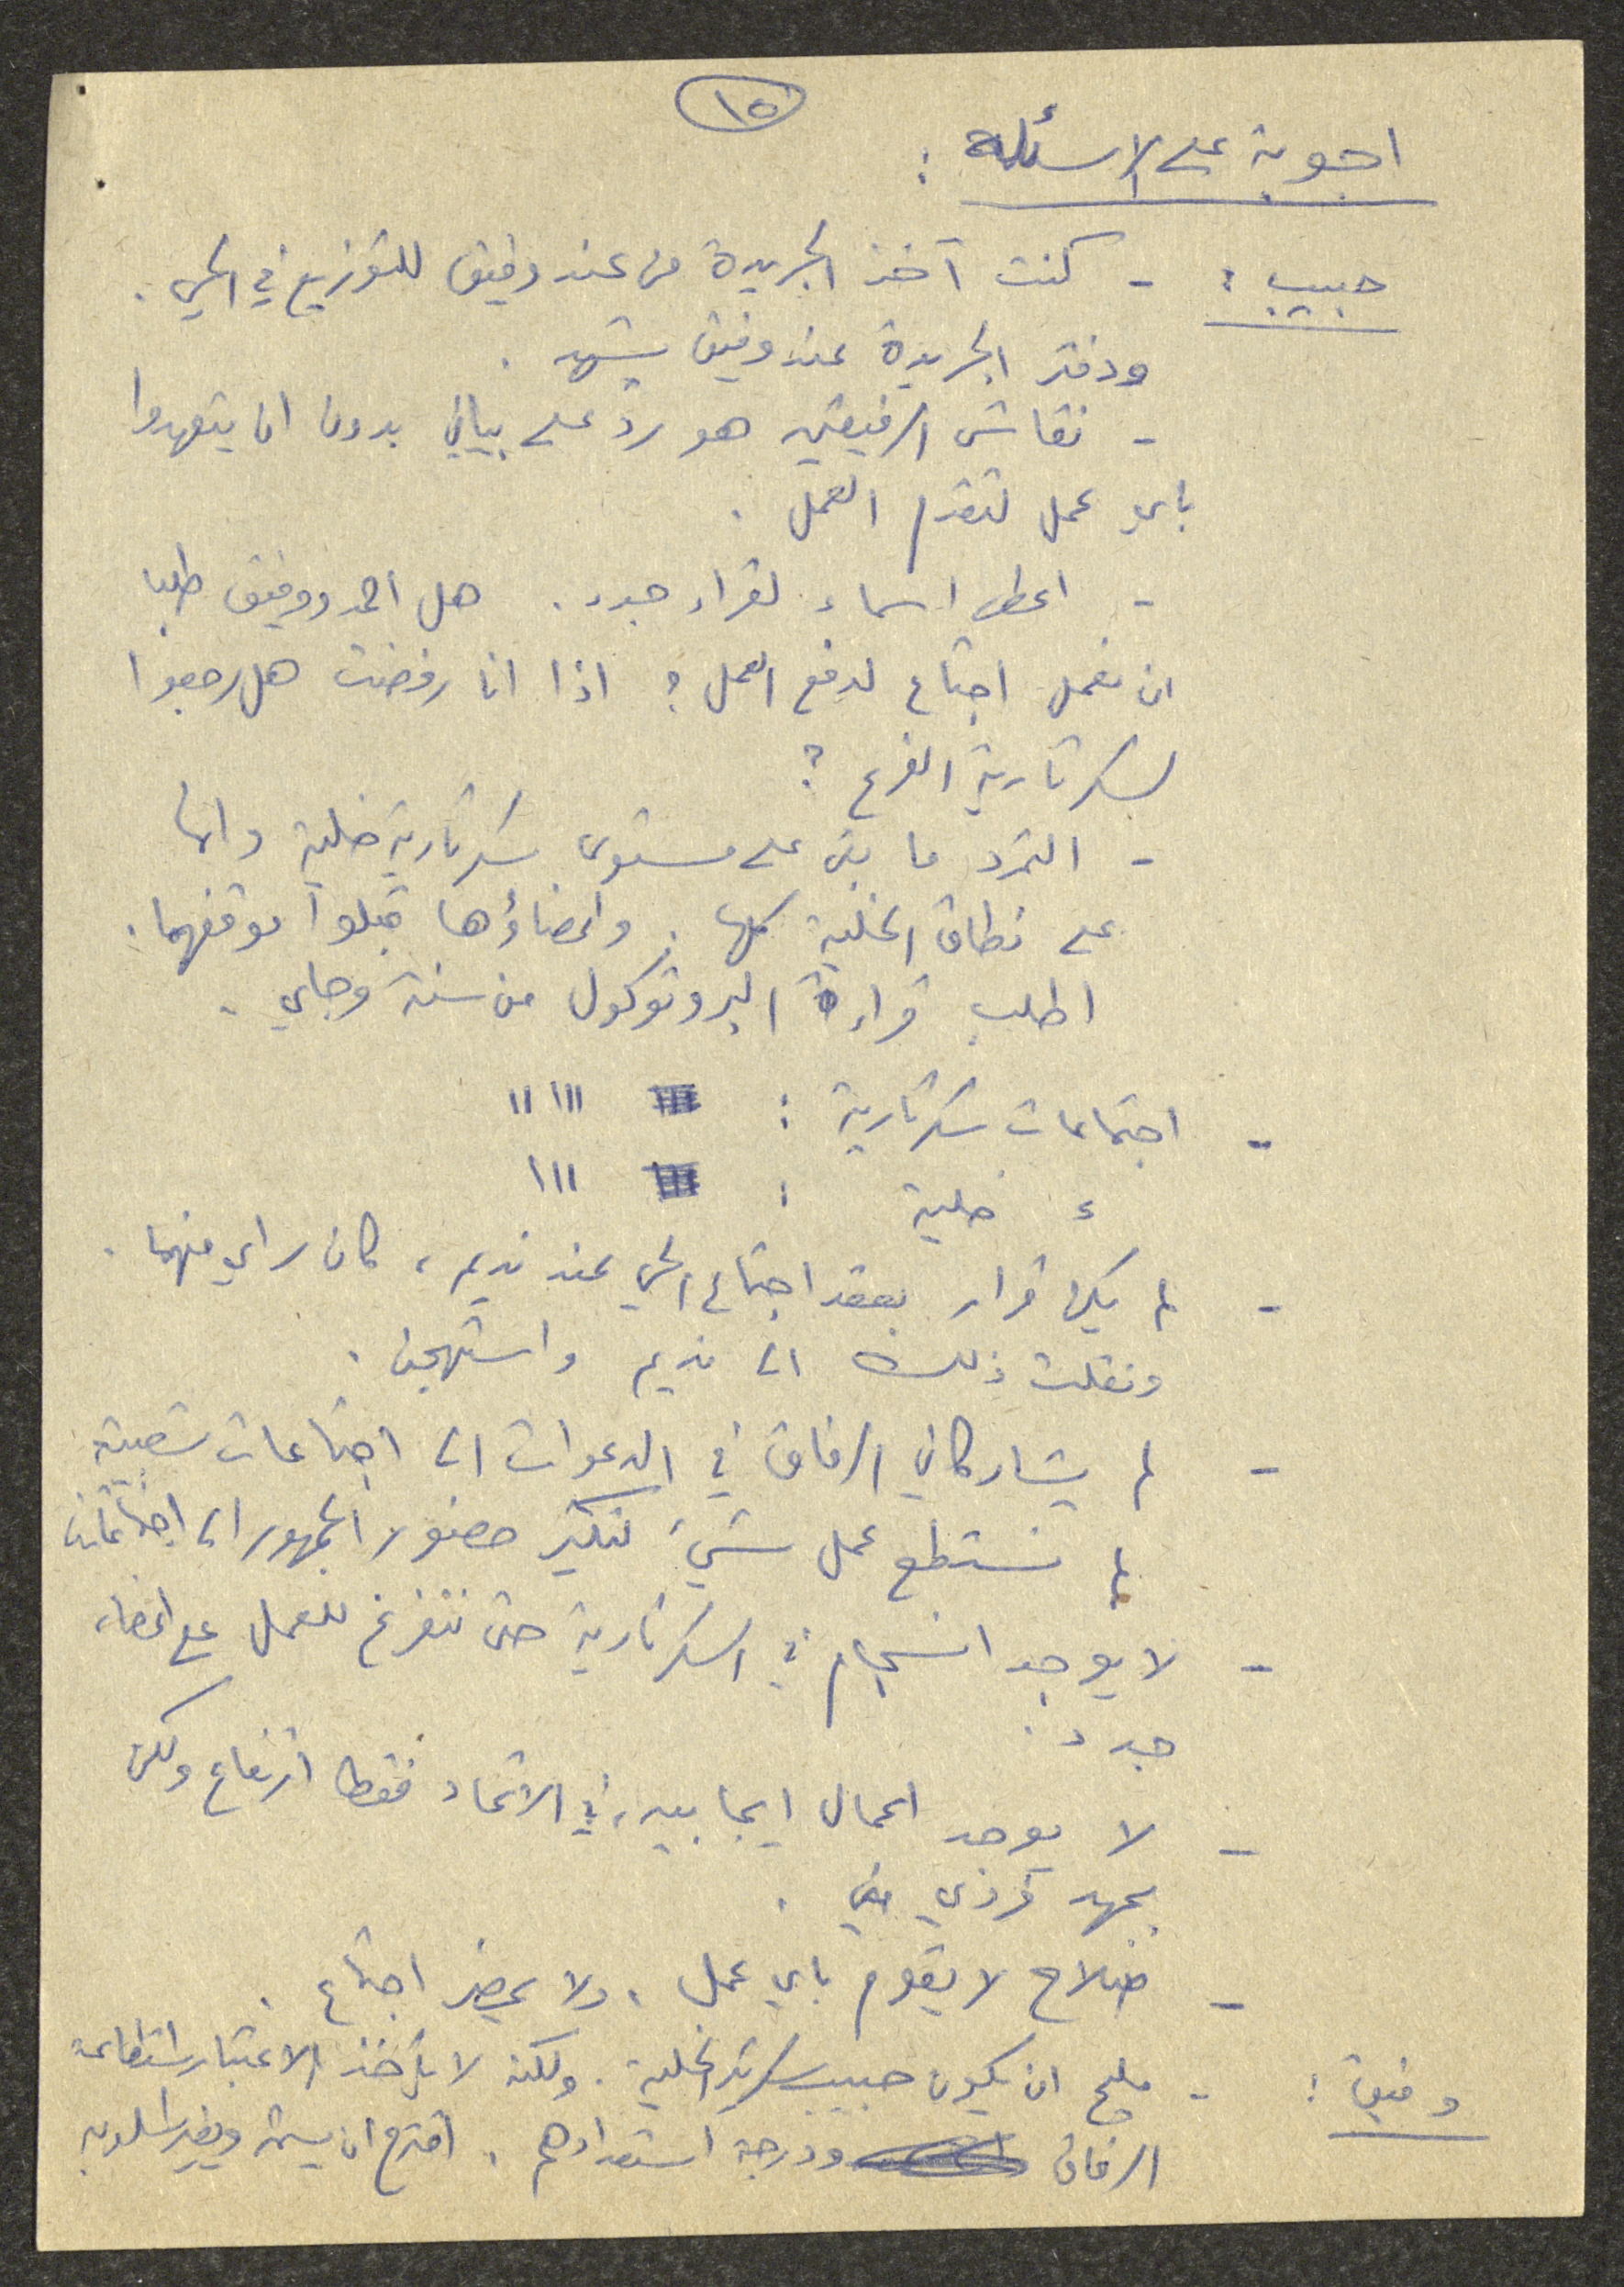 ١٥
اجوبة على الاسئلة :
حبيب : - كنت آخذ الجريدة من عند وفيق للتوزيع في الحي .
ودفتر الجريدة عند وفيق يشهد .
- نقاش الرفيقين هو رد على بياني بدون ان يتعهدوا
باي عمل لتقدم العمل .
- اعطي اسماء لقراء جدد . هل احمد ووفيق طلبا
ان نعمل اجتماع لدفع العمل ؟ اذا انا رفضت هل رجعوا
لسكرتارية الفرع ؟
- التمرد ما بقى على مستوى سكرتارية خلية وانما
على نطاق الخلية كلها . واعضاؤها قبلوا موقفهما .
اطلب قراءة البروتوكول من سنة وجاي .
- اجتماعات سكرتارية : ١١١ ١١
ء خلية : ١١١
- لم يكن قرار بعقد اجتماع الحي عند نديم ، كان راي منهما .
ونقلت ذلك الى نديم واستهجن .
- لم يشاركاني الرفاق في الدعوات الى اجتماعات شعبية
لم نستطع عمل شيء لتكبير حضور الجمهور الى اجتماعاتنا
- لا يوجد انسجام في السكرتارية حتى نتفرغ للعمل مع اعضاء
جدد .
- لا يوجد اعمال ايجابيه ، في الاتحاد فقط ارتفاع ولكن
بجهد فردي مني .
- صلاح لا يقوم باي عمل . ولا يحضر اجتماع .
وفيق : - مليح ان يكون حبيب سكرتير الخلية . ولكنه لا يأخذ الاعتبار استطاعة
الرفاق ودرجة استعدادهم . اقترح ان يستمر ويغير اسلوبه